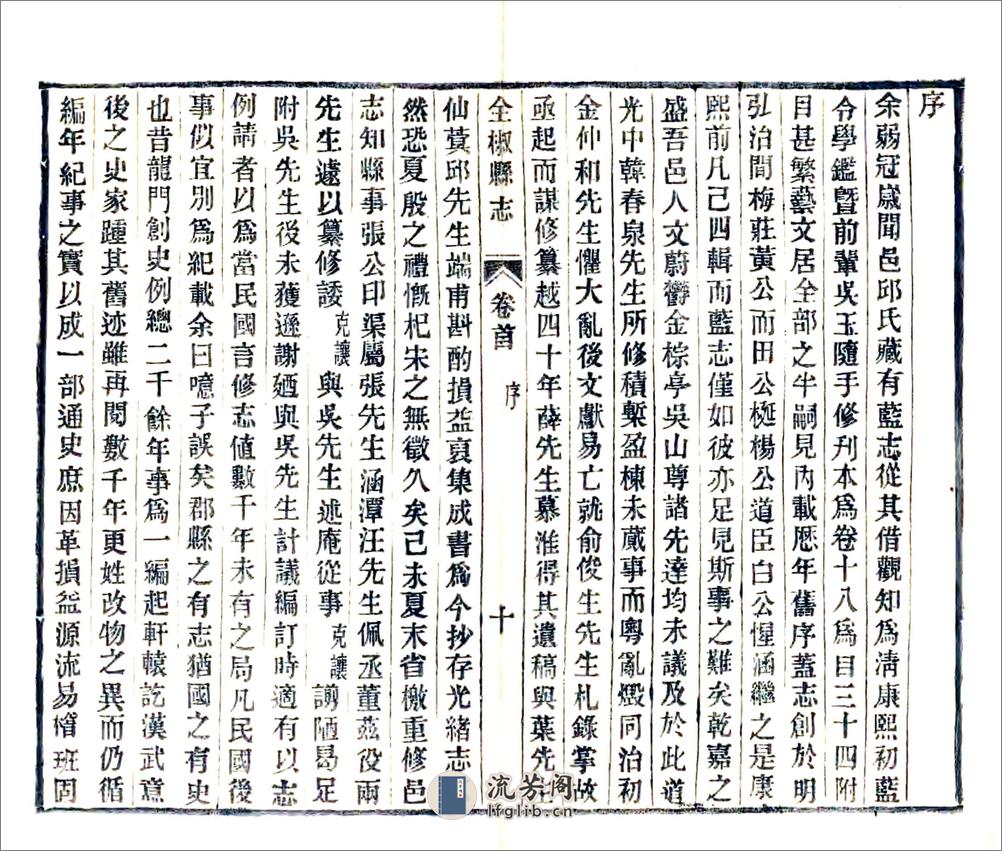 序
余弱冠歲聞邑邱氏藏有藍志從其借觀知爲淸康熙初藍
令學鑑曁前輩吳玉隨手修刊本爲卷十八爲目三十四附
目甚繁藝文居全部之半嗣見內載歷年舊序蓋志創於明
弘治間梅莊黃公而田公梴楊公道臣白公惺涵繼之是康
熙前凡已四輯而藍志僅如彼亦足見斯事之難矣乾嘉之
盛吾邑人文蔚鬱金棕亭吳山尊諸先達均未議及於此道
光中韓春泉先生所修積槧盈棟未蕆事而粵亂燬同治初
金仲和先生懼大亂後文獻易亡就俞俊生先生札錄掌故
亟起而謀修纂越四十年薛先生慕淮得其遺稿與葉先生
全椒縣志 卷首 序 十
仙蓂邱先生端甫斟酌損益裒集成書爲今抄存光緖志
然恐夏殷之禮慨杞宋之無徵久矣己未夏末省檄重修邑
志知縣事張公印渠屬張先生涵潭汪先生佩丞董茲役兩
先生遠以纂修諉克讓與吳先生述庵從事克讓謭陋曷足
附吳先生後未獲遜謝廼與吳先生計議編訂時適有以志
例請者以爲當民國言修志値數千年未有之局凡民國後
事似宜別爲紀載余曰噫子誤矣郡縣之有志猶國之有史
也昔龍門創史例總二千餘年事爲一編起軒轅訖漢武意
後之史家踵其舊迹雖再閱數千年更姓改物之異而仍循
編年紀事之實以成一部通史庶因革損益源流易稽班固
流芳阁
lfglib.cn